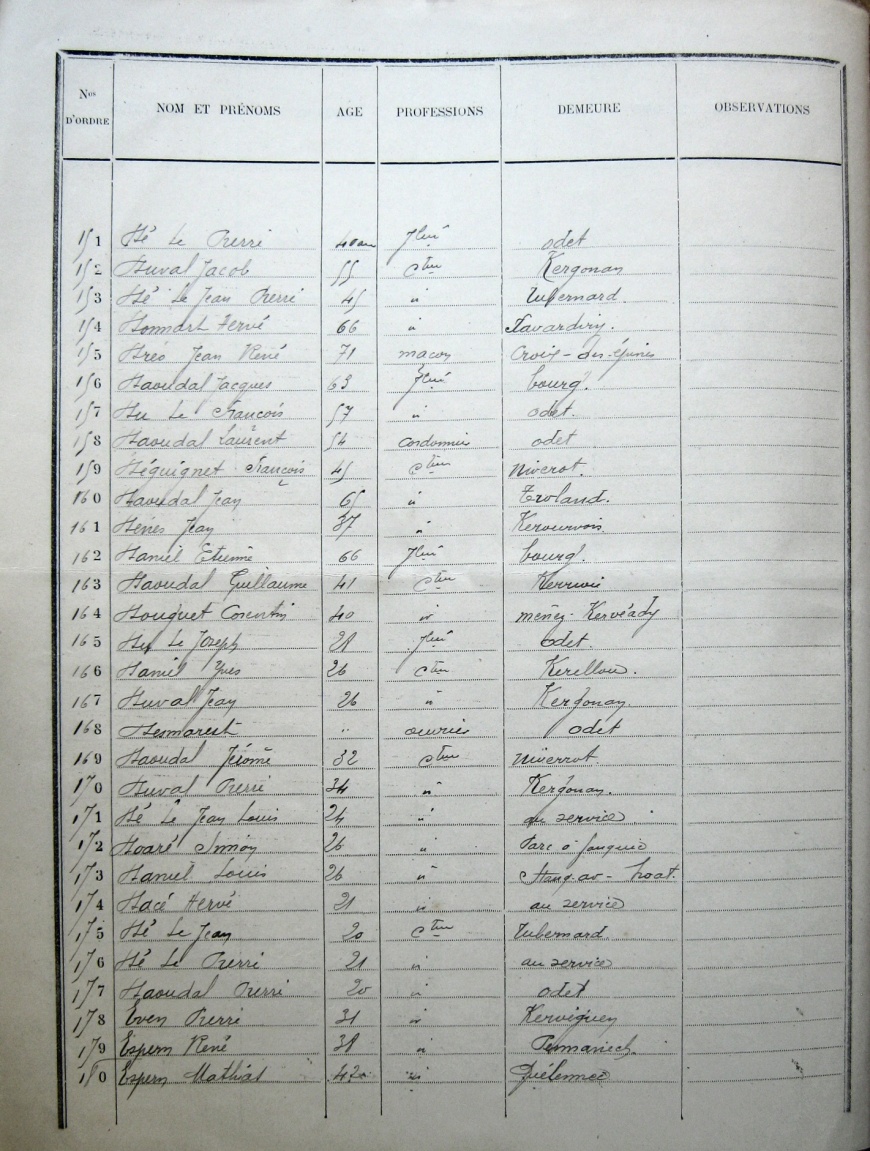 Nos D'ORDRE NOM ET PRÉNOMS AGE PROFESSIONS DEMEURE OBSERVATIONS
151 Hé Le Pierre 40 ans odet
152 Huval Jacob 55 cteur Kergonan
153 Hé Le Jean Pierre 45 " Tubernard
154 Hervé 66 "
155 Jean René 71 maçon Croix-des-épines
156 Haoudal Jacques 63 bourg.
157 Hu Le François 57 " odet.
158 Haoudal Laurent 54 Cordonnier odet
159 Héguignet François 45 cteur Niverrot.
160 Haoudal Jean 65 " Troland.
161 Hénès Jean 37 " Kerourvois
162 Haniel Étienne 66 bourg.
163 Haoudal Guillaume 41 cteur
164 Houguet Corentin 40 " menez-Kervéady
165 Hu Le Joseph 28 odet.
166 Haniel Yves 26 cteur Kerellou.
167 Huval Jean 26 " Kergonan.
168 Hesmarest .. ouvrier odet
169 Haoudal Jérôme 32 cteur Niverrot
170 Huval Pierre 34 " Kergonan.
171 Hé Le Jean Louis 24 " au service
172 Hoaré Simon 26 "
173 Haniel Louis 26 " Stang-ar-hoat.
174 Hacé Hervé 21 " au service
175 Hé Le Jean 20 cteur Tubernard
176 Hé Le Pierre 21 " au service
177 Haoudal Pierre 20 " odet
178 Even Pierre 31 " Kerviguen
179 Espern René 38 " Penanech
180 Espern Mathias 42 " Quélennec